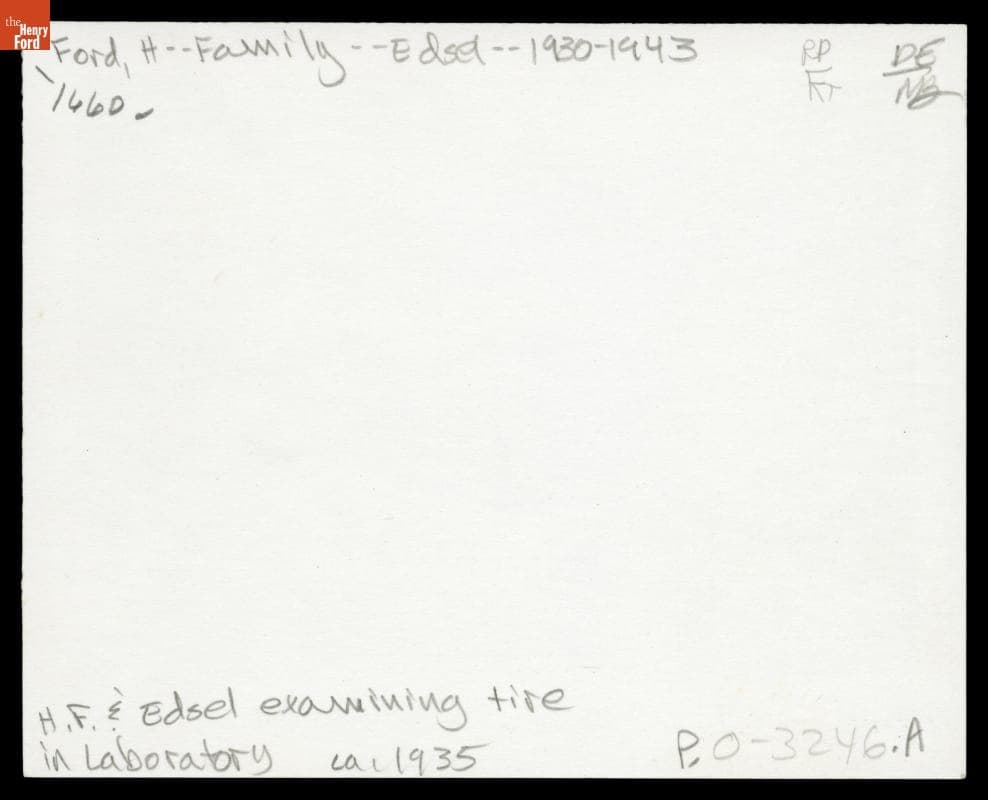 the
Henry
Ford
Ford, H--Family--Edsel--1930-1943
1660
RP
KT
DE
MB
H.F. & Edsel examining tire
in Laboratory ca. 1935
P.O-3246.A